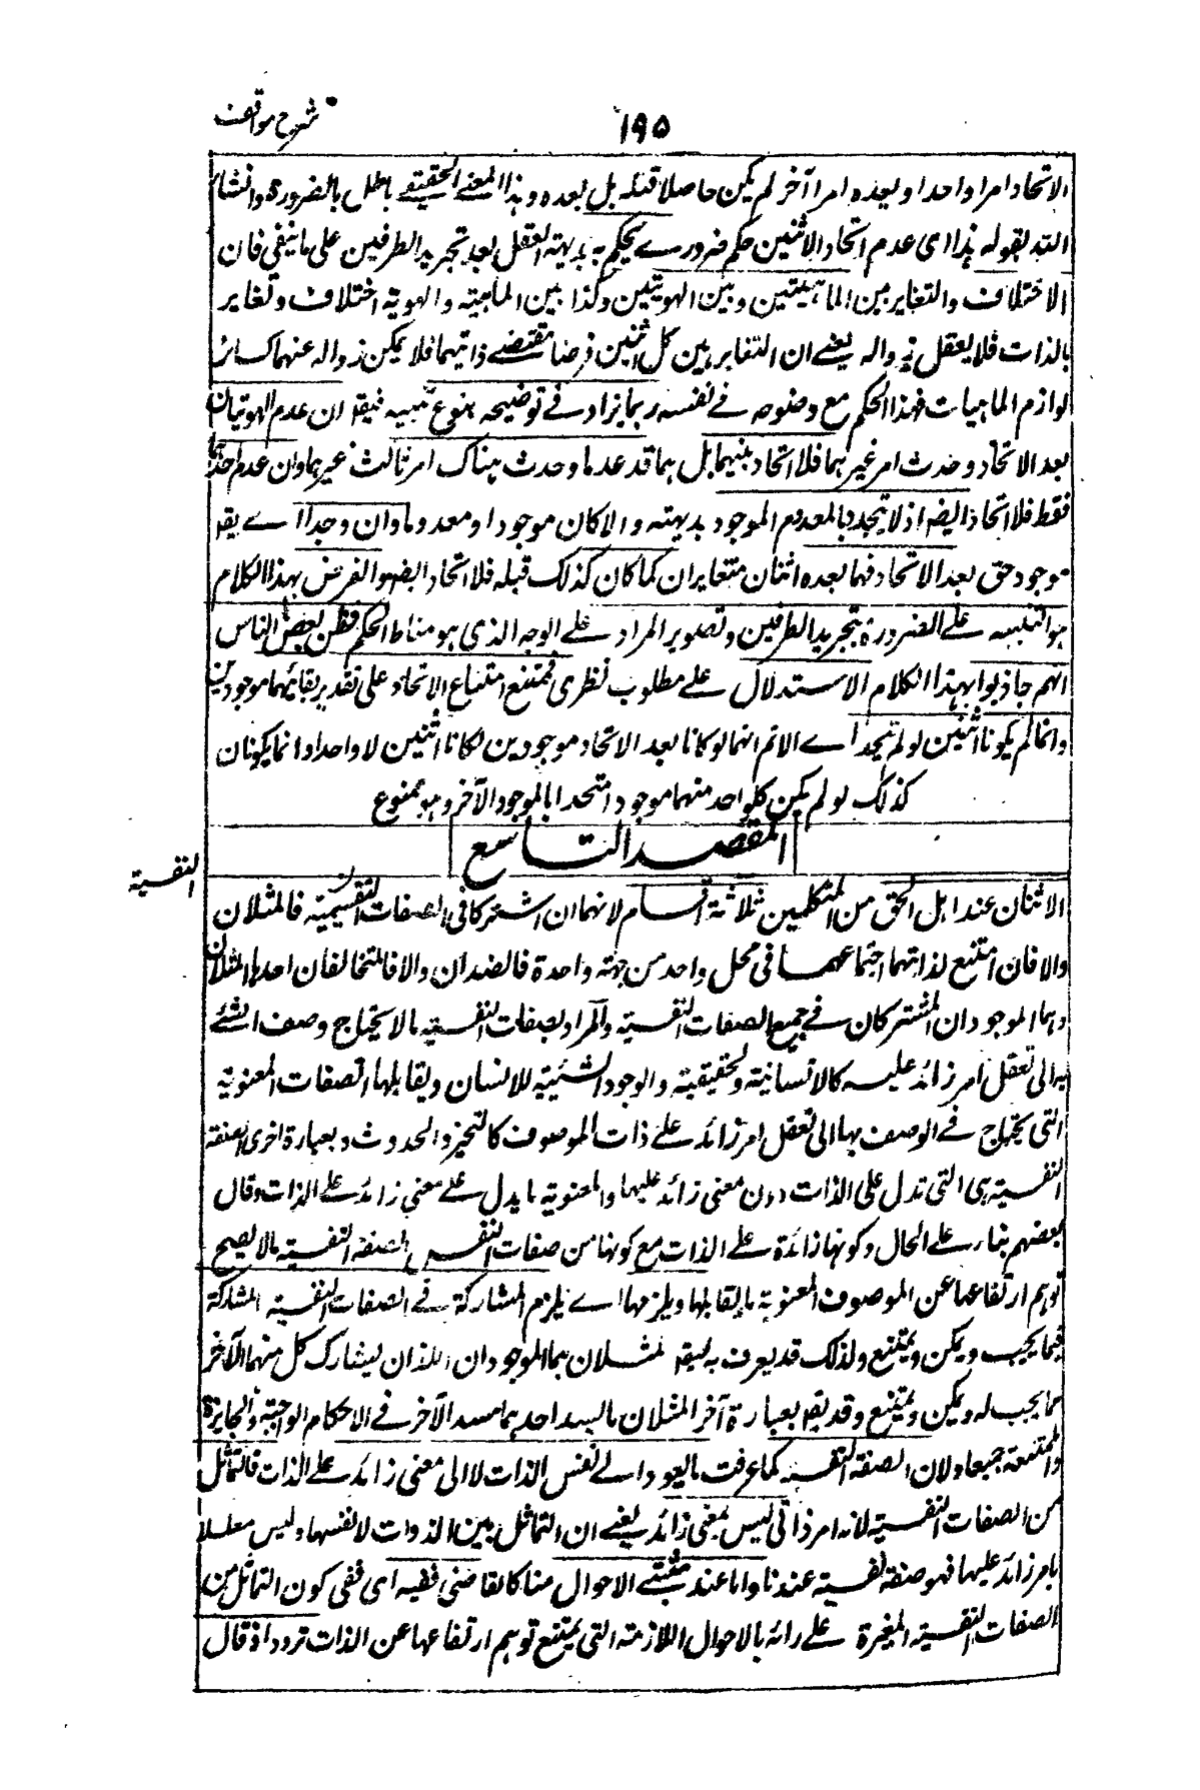 شرح مواقف
١٩٥
الاتحاد امرا واحدا وبعده امرا آخر لم يكن حاصلا قبله بل بعده وهذا المعنى الحقيقى باطل بالضرورة وانشأ
اليه بقوله هذا اى عدم اتحاد الاثنين حكم ضرورے يحكم به بديهته العقل بعد تجريد الطرفين على ما ينبغى فان
الاختلاف والتغاير بين الماهيتين وبين الهويتين وكذا بين الماهيته والهوية اختلاف وتغاير
بالذات فلا يعقل زواله يعنے ان التغاير بين كل اثنين فرضا مقتضے ذاتيهما فلا يمكن زواله عنهما كسائر
لوازم الماهيات فهذا الحكم مع وضوحه فے نفسه ربما يزاد فے توضيحه بنوع تنبيه فيقم ان عدم الهويتان
بعد الاتحاد وحدث امر غيرهما فلا اتحاد بينهما بل هما قد عدما وحدث هناك امر ثالث غيرهما وان عدم احدهما
فقط فلا اتحاد ايضا اذ لا يتحد المعدوم بالموجود بديهته والا كان موجودا ومعدوما وان وجدا اے بقے
موجودين بعد الاتحاد فهما بعده اثنان متغايران كما كان كذلك قبله فلا اتحاد ايضا والغرض بهذا الكلام
هو التنبيه علے الضرورة بتجريد الطرفين وتصوير المراد علے الوجه الذى هو مناط الحكم فظن بعض الناس
انهم حاولوا بهذا الكلام الاستدلال علے مطلوب نظرى فمنع امتناع الاتحاد على تقدير بقائهما موجودين
وانما لم يكونا اثنين لو لم يتحدا اے لا تم انهما لو كانا بعد الاتحاد موجودين لكانا اثنين لا واحدا وانما يكونان
كذلك لو لم يكن كل واحد منهما موجودا متحدا بالموجود الآخر وهو ممنوع
المقصد التاسع
النفسية
الاثنان عند اهل الحق من المتكلمين ثلاثة اقسام لانهما ان اشتركا فى الصفات النفسية فالمثلان
والا فان امتنع لذاتهما اجتماعهما فى محل واحد من جهته واحدة فالضدان والا فالمتخالفان احدها المثلان
وهما الموجودان المشتركان فے جميع الصفات النفسية والمراد بصفات النفسية ما لا يحتاج وصف الشئے
به الى تعقل امر زائد عليه كالانسانية والحقيقية والوجود والشيئية للانسان ويقابلها الصفات المعنوية
التى يحتاج فے الوصف بها الى تعقل امر زائد علے ذات الموصوف كالتحيز والحدوث وبعبارة اخرى الصفة
النفسية هى التى تدل على الذات دون معنى زائد عليها والمعنوية ما يدل علے معنى زائد علے الذات وقال
بعضهم بناء علے الحال وكونها زائدة علے الذات مع كونها من صفات النفس الصفة النفسية ما لا يصح
توهم ارتفاعها عن الموصوف والمعنوية ما يقابلها ويلزمها اے يلزم المشاركة فے الصفات النفسية المشاركة
فيما يجب ويمكن ويمتنع ولذلك قد يعرف به فيقم المثلان هما الموجودان اللذان يشارك كل منهما الآخر
فيما يجب له ويمكن ويمتنع وقد يقم بعبارة آخر المثلان ما يسد احدهما مسد الآخر فے الاحكام الواجبة والجايزة
والممتنعة جميعا ولان الصفة النفسية كما عرفت ما يعود الے نفس الذات لا الى معنى زائد علے الذات فالتماثل
من الصفات النفسية لانه امر ذاتى ليس بمعنى زائد يعنے ان التماثل بين الذوات لانفسها وليس معللا
بامر زائد عليها فهو صفة نفسية عندنا واما عند مثبتے الاحوال منا كالقاضى ففيه اى ففى كون التماثل من
الصفات النفسية المفسرة علے رائه بالاحوال اللازمة التى يمتنع توهم ارتفاعها عن الذات تردد اذ قال